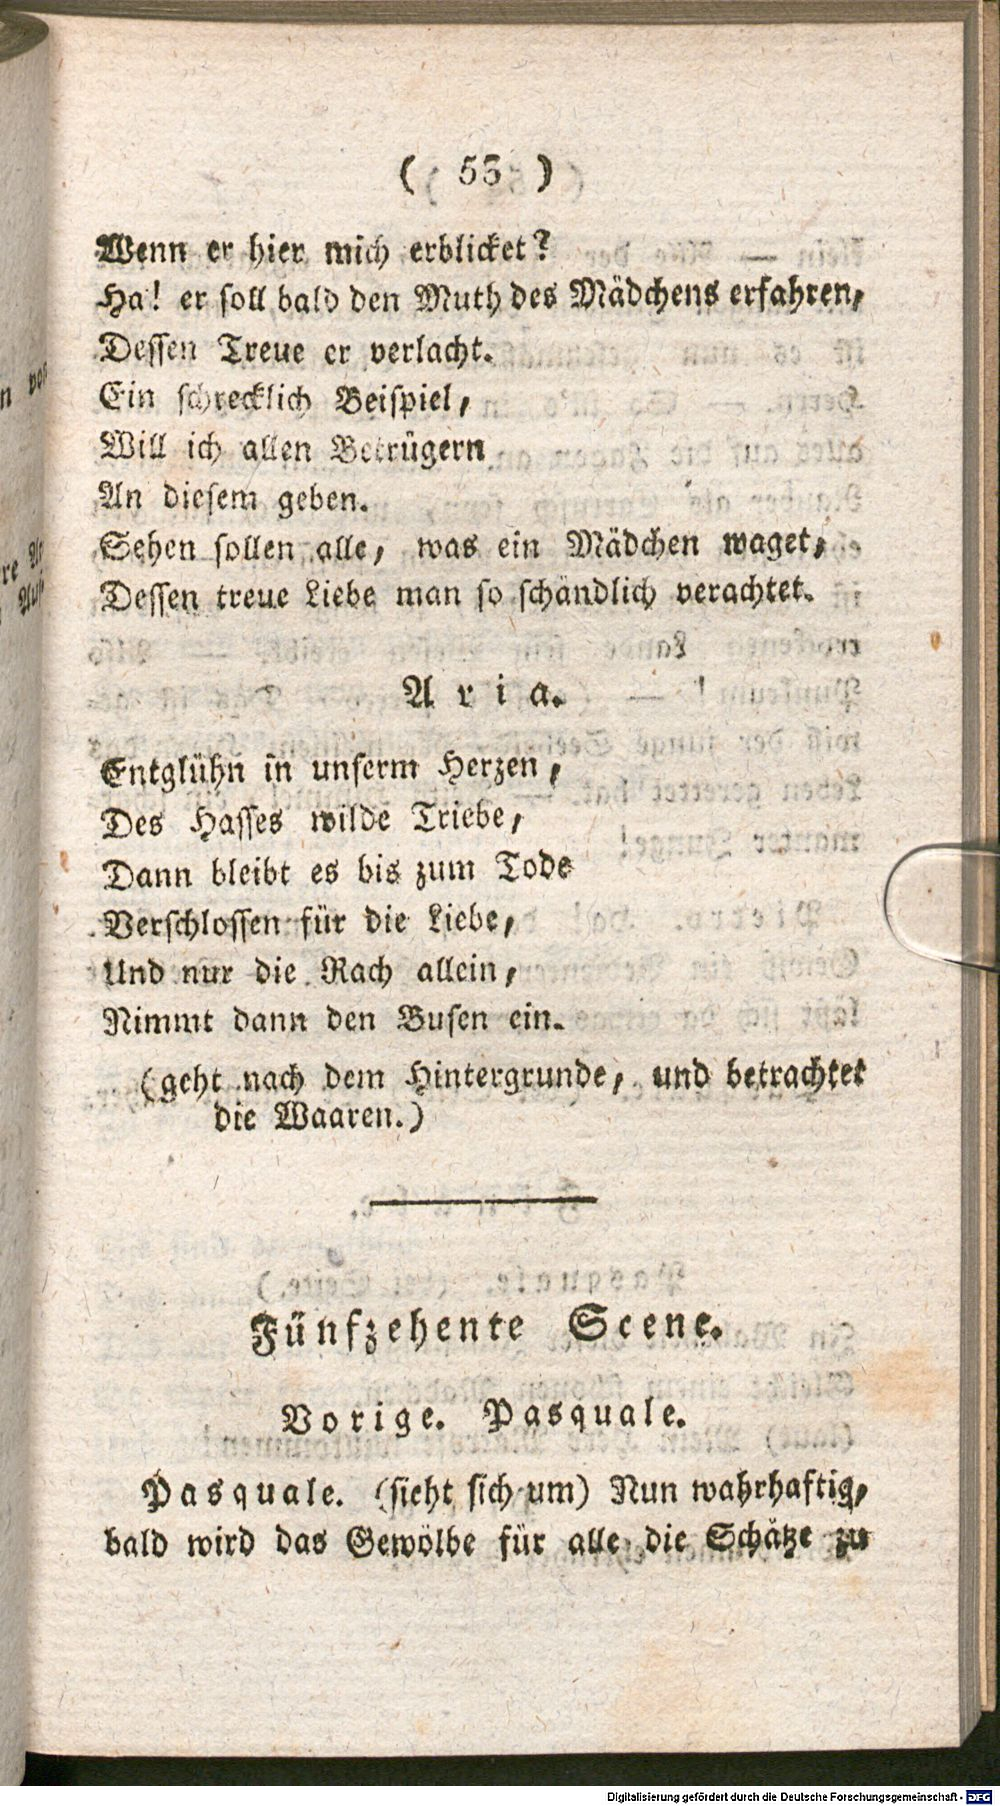 ( 53 )
Wenn er hier mich erblicket?
Ha! er soll bald den Muth des Mädchens erfahren,
Dessen Treue er verlacht.
Ein schrecklich Beispiel,
Will ich allen Betrügern
An diesem geben.
Sehen sollen alle, was ein Mädchen waget,
Dessen treue Liebe man so schändlich verachtet.
Aria.
Entglühn in unserm Herzen,
Des Hasses wilde Triebe,
Dann bleibt es bis zum Tode
Verschlossen für die Liebe,
Und nur die Rach allein,
Nimmt dann den Busen ein.
(geht nach dem Hintergrunde, und betrachtet
die Waaren.)
Fünfzehente Scene.
Vorige. Pasquale.
Pasquale. (sieht sich um) Nun wahrhaftig,
bald wird das Gewölbe für alle die Schätze zu
Digitalisierung gefördert durch die Deutsche Forschungsgemeinschaft - DFG